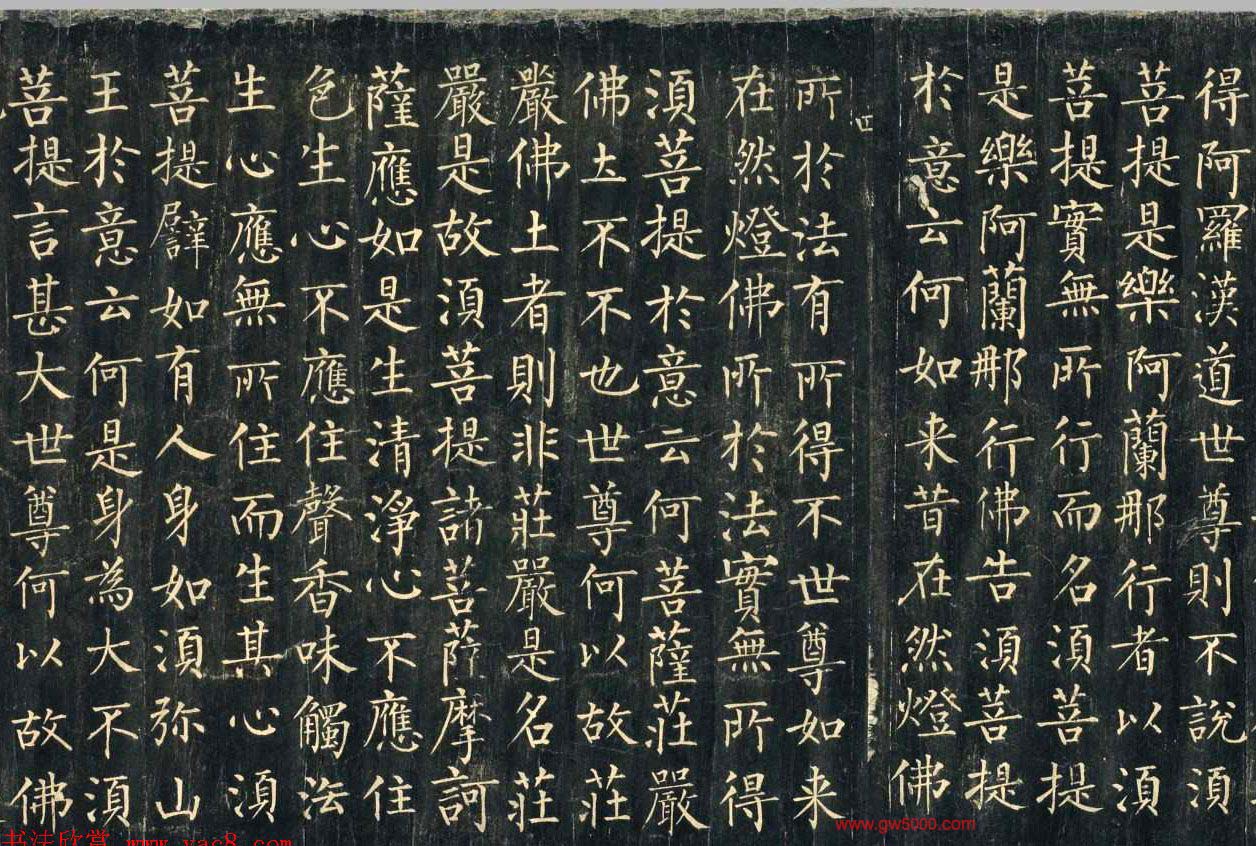 得阿羅漢道世尊則不說須
菩提是樂阿蘭那行者以須
菩提實無所行而名須菩提
是樂阿蘭那行佛告須菩提
於意云何如来昔在然燈佛
所於法有所得不世尊如来
在然燈佛所於法實無所得
須菩提於意云何菩薩莊嚴
佛土不不也世尊何以故莊
嚴佛土者則非莊嚴是名莊
嚴是故須菩提諸菩薩摩訶
薩應如是生清淨心不應住
色生心不應住聲香味觸法
生心應無所住而生其心須
菩提譬如有人身如須弥山
王於意云何是身為大不須
菩提言甚大世尊何以故佛
www.gw5000.com
书法欣赏 www.yac8.com